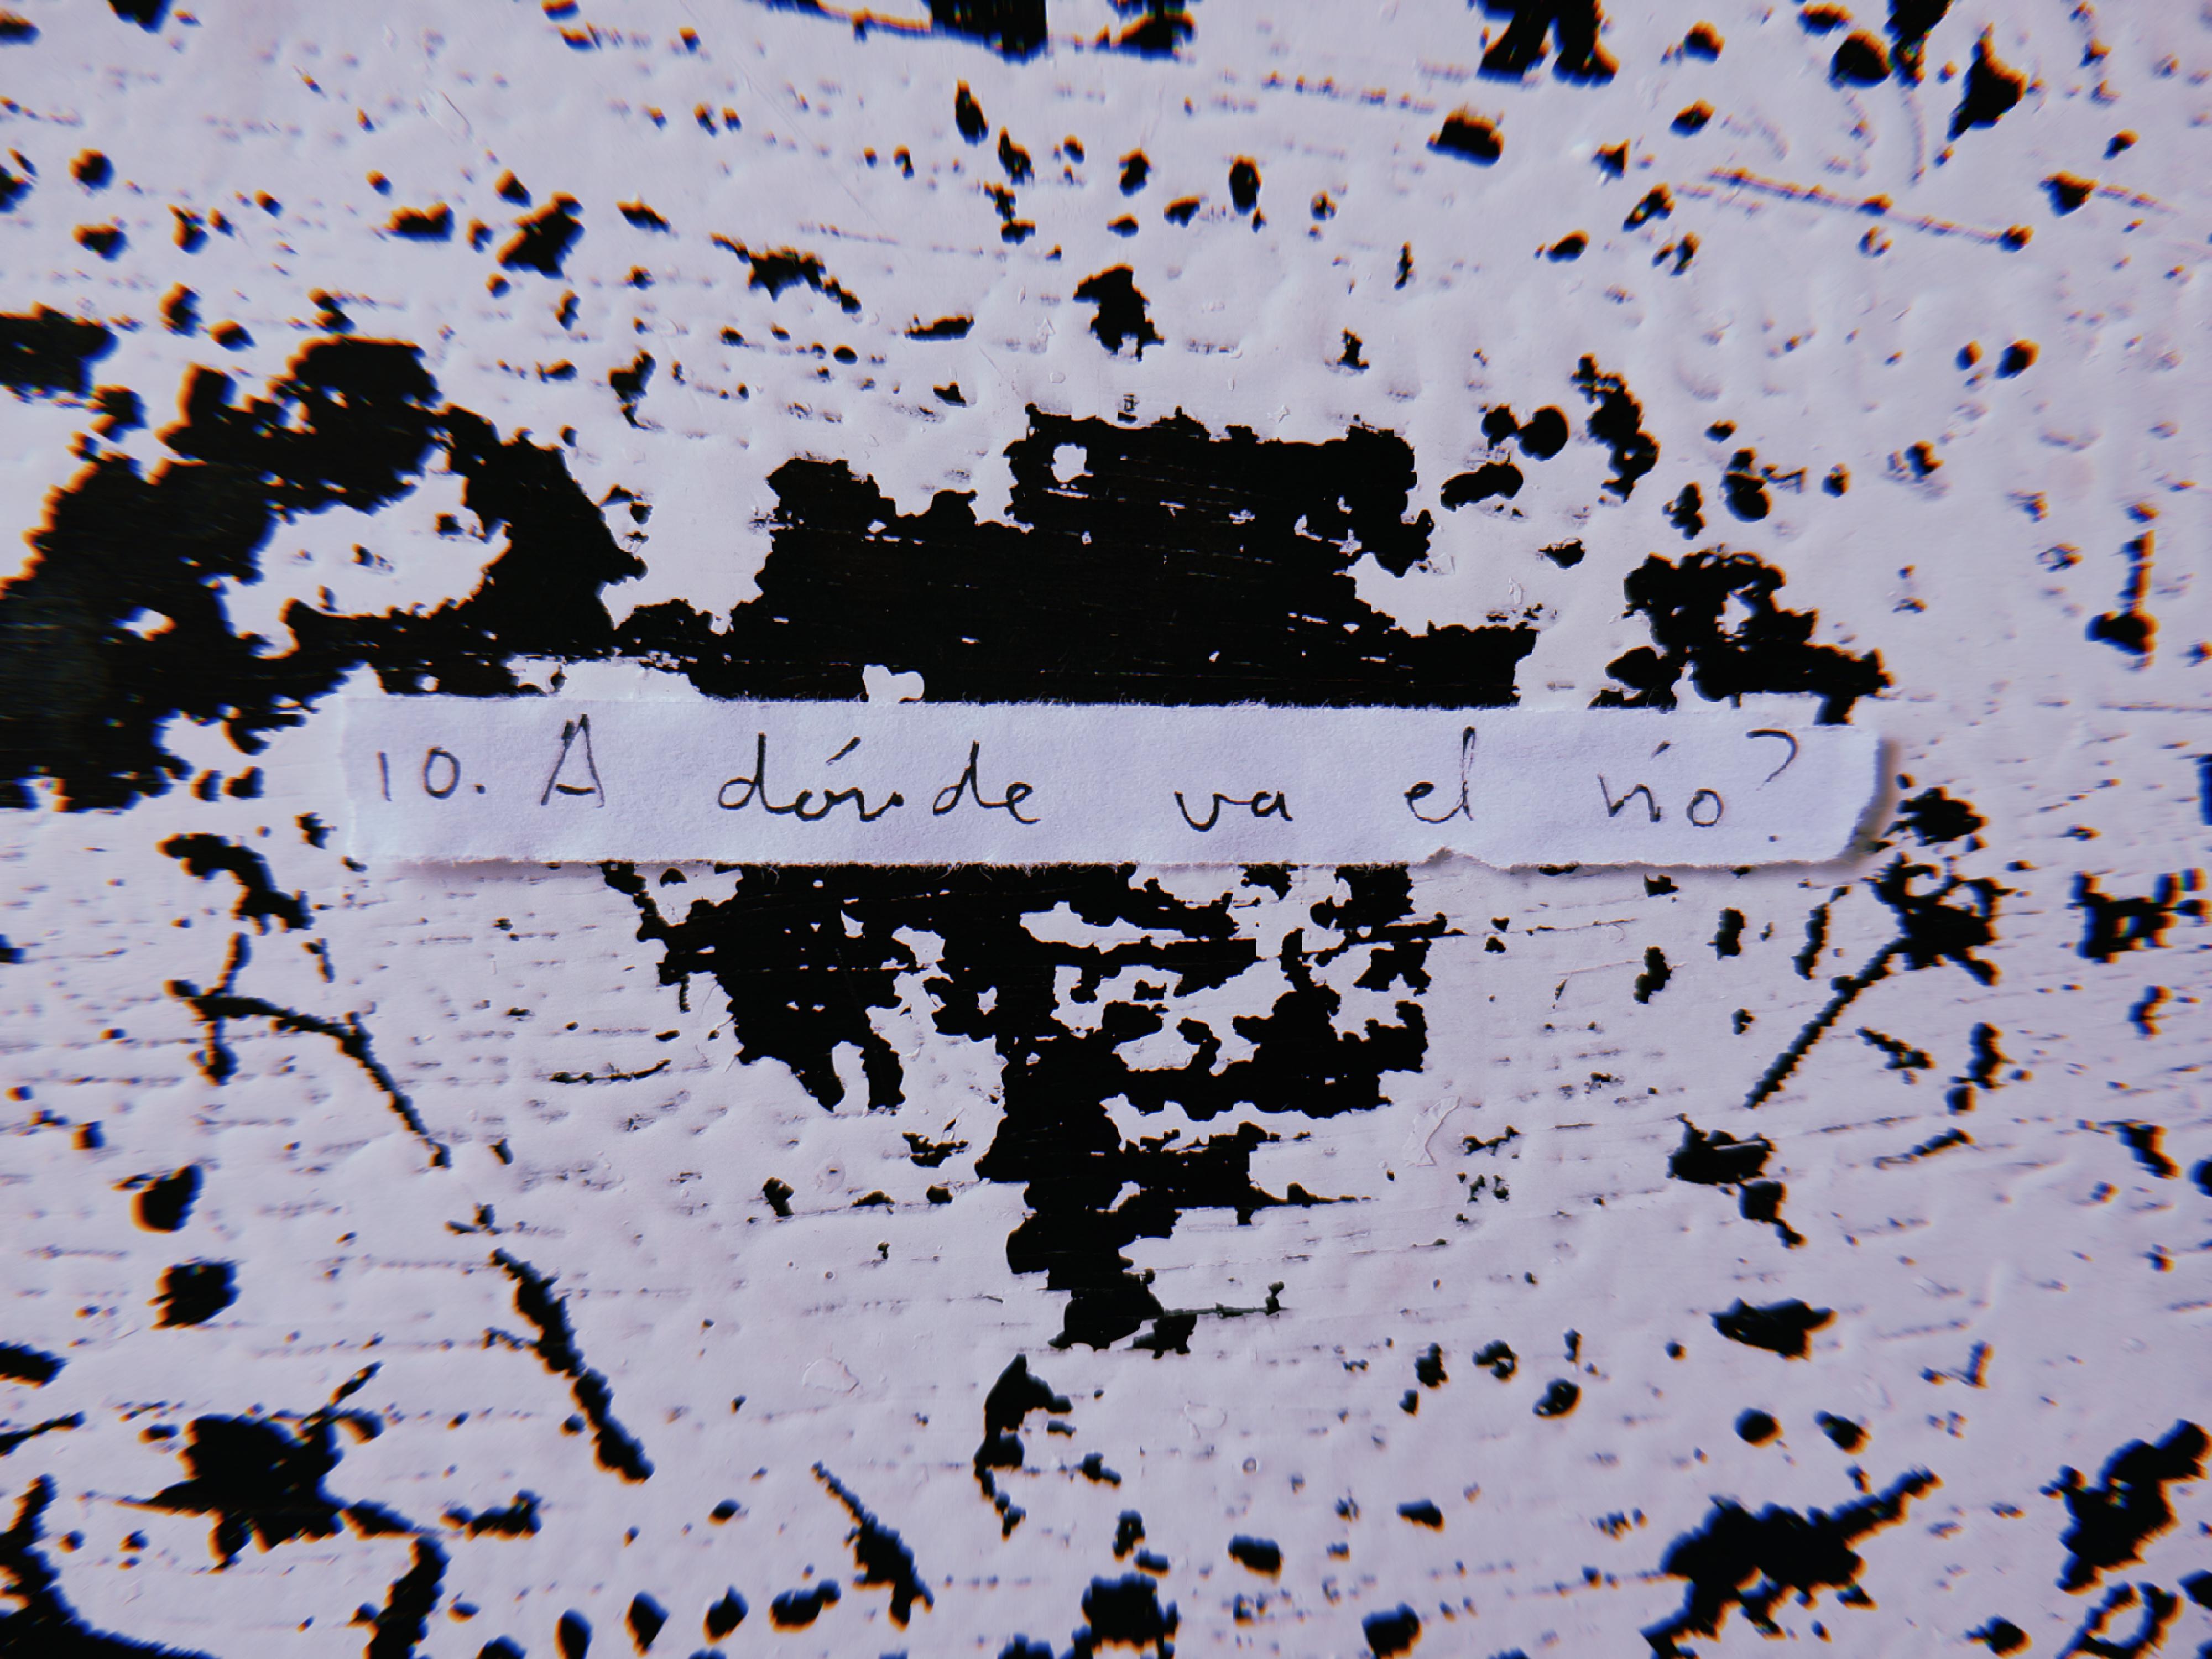 10. A dónde va el río?